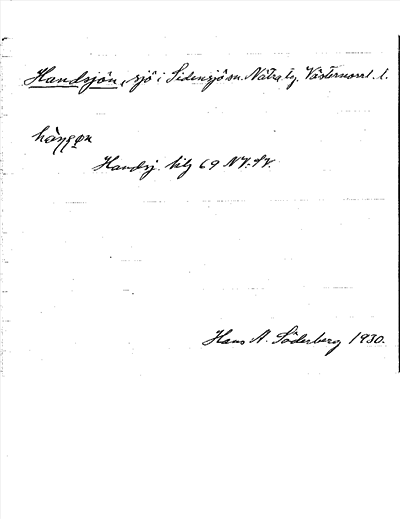 Handsjön, sjö i Sidensjö sn. Nätra tg. Västernorrl. l.
Handsj. blg 69 NV. SV.
Hans A. Söderberg 1930.